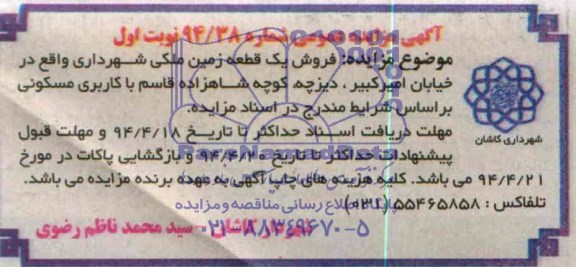 آگهی مزایده عمومی شماره ۹۴/۳۸ نوبت اول
موضوع مزایده: فروش یک قطعه زمین ملکی شهرداری واقع در
خیابان امیرکبیر ، دیزچه، کوچه شاهزاده قاسم با کاربری مسکونی
براساس شرایط مندرج در اسناد مزایده.
مهلت دریافت اسناد حداکثر تا تاریخ ۹۴/۴/۱۸ و مهلت قبول
پیشنهادات حداکثر تا تاریخ ۹۴/۴/۲۰ و بازگشایی پاکات در مورخ
۹۴/۴/۲۱ می باشد. کلیه هزینه های چاپ آگهی به عهده برنده مزایده می باشد.
تلفاکس : ۵۵۴۶۵۸۵۸ (۰۳۱)
شهردار کاشان - سید محمد ناظم رضوی
شهرداری کاشان
ParsNamadData
پایگاه اطلاع رسانی مناقصه و مزایده
۰۲۱-۸۸۳۴۹۶۷۰-۵